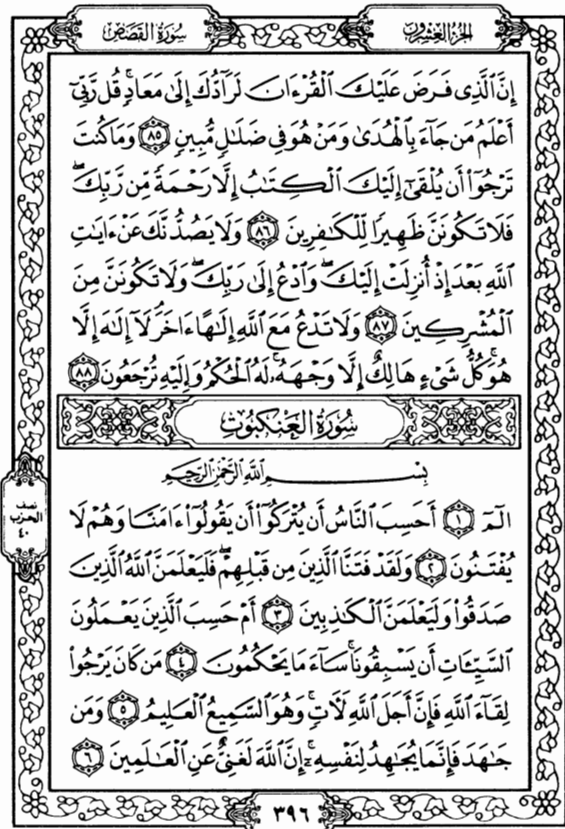 سُورَةُ القَصَصِ
الجُزْءُ العِشْرُونَ
إِنَّ ٱلَّذِى فَرَضَ عَلَيْكَ ٱلْقُرْءَانَ لَرَآدُّكَ إِلَىٰ مَعَادٍۚ قُل رَّبِّىٓ
أَعْلَمُ مَن جَآءَ بِٱلْهُدَىٰ وَمَنْ هُوَ فِى ضَلَٰلٍ مُّبِينٍ ٨٥ وَمَا كُنتَ
تَرْجُوٓا۟ أَن يُلْقَىٰٓ إِلَيْكَ ٱلْكِتَٰبُ إِلَّا رَحْمَةً مِّن رَّبِّكَۖ
فَلَا تَكُونَنَّ ظَهِيرًا لِّلْكَٰفِرِينَ ٨٦ وَلَا يَصُدُّنَّكَ عَنْ ءَايَٰتِ
ٱللَّهِ بَعْدَ إِذْ أُنزِلَتْ إِلَيْكَۖ وَٱدْعُ إِلَىٰ رَبِّكَۖ وَلَا تَكُونَنَّ مِنَ
ٱلْمُشْرِكِينَ ٨٧ وَلَا تَدْعُ مَعَ ٱللَّهِ إِلَٰهًا ءَاخَرَۘ لَآ إِلَٰهَ إِلَّا
هُوَۚ كُلُّ شَىْءٍ هَالِكٌ إِلَّا وَجْهَهُۥۚ لَهُ ٱلْحُكْمُ وَإِلَيْهِ تُرْجَعُونَ ٨٨
سُورَةُ العَنكَبُوتِ
بِسْمِ ٱللَّهِ ٱلرَّحْمَٰنِ ٱلرَّحِيمِ
الٓمٓ ١ أَحَسِبَ ٱلنَّاسُ أَن يُتْرَكُوٓا۟ أَن يَقُولُوٓا۟ ءَامَنَّا وَهُمْ لَا
يُفْتَنُونَ ٢ وَلَقَدْ فَتَنَّا ٱلَّذِينَ مِن قَبْلِهِمْۖ فَلَيَعْلَمَنَّ ٱللَّهُ ٱلَّذِينَ
صَدَقُوا۟ وَلَيَعْلَمَنَّ ٱلْكَٰذِبِينَ ٣ أَمْ حَسِبَ ٱلَّذِينَ يَعْمَلُونَ
ٱلسَّيِّـَٔاتِ أَن يَسْبِقُونَاۚ سَآءَ مَا يَحْكُمُونَ ٤ مَن كَانَ يَرْجُوا۟
لِقَآءَ ٱللَّهِ فَإِنَّ أَجَلَ ٱللَّهِ لَءَاتٍۚ وَهُوَ ٱلسَّمِيعُ ٱلْعَلِيمُ ٥ وَمَن
جَٰهَدَ فَإِنَّمَا يُجَٰهِدُ لِنَفْسِهِۦٓۚ إِنَّ ٱللَّهَ لَغَنِىٌّ عَنِ ٱلْعَٰلَمِينَ ٦
نصف
الحزب
٤٠
٣٩٦